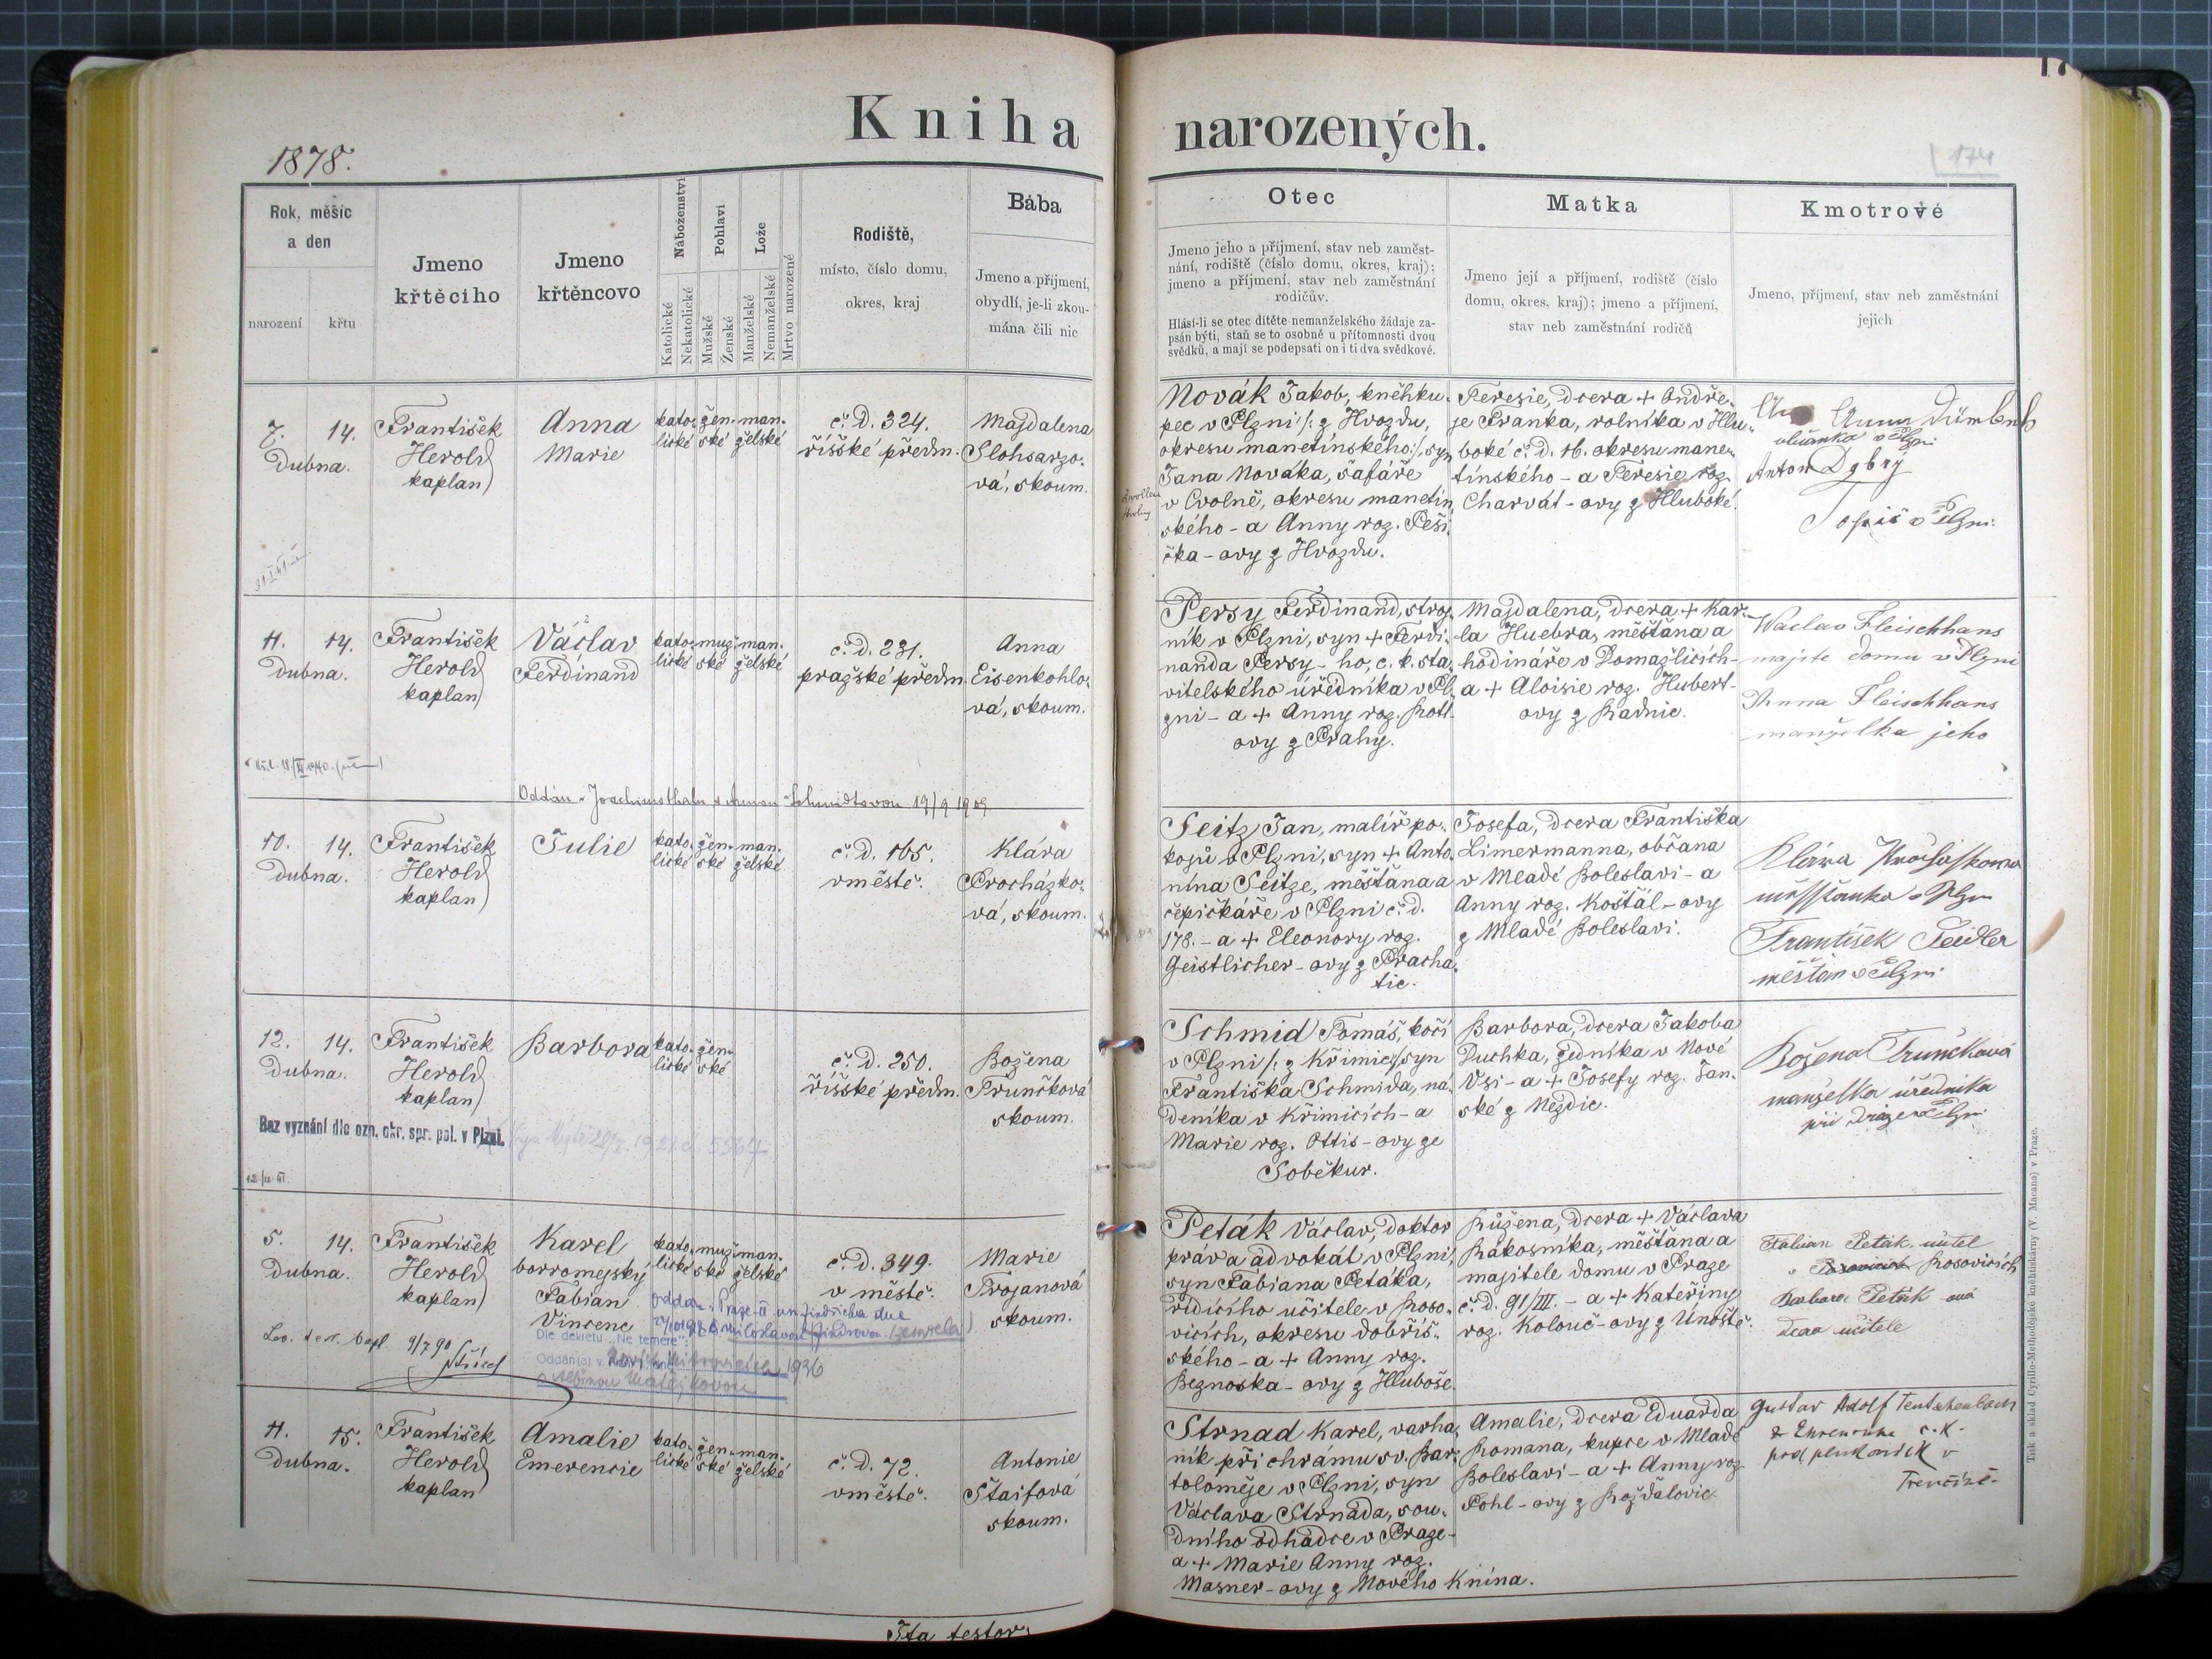 Kniha narozených.
1878.
174
17
Rok, měsíc
a den
narození
křtu
Jmeno
křtěcího
Jmeno
křtěncovo
Náboženství
Katolické
Nekatolické
Pohlaví
Mužské
Ženské
Lože
Manželské
Nemanželské
Mrtvo narozené
Rodiště,
místo, číslo domu,
okres, kraj
Bába
Jmeno a příjmení,
obydlí, je-li zkou-
mána čili nic
Otec
Jmeno jeho a příjmení, stav neb zaměst-
nání, rodiště (číslo domu, okres, kraj);
jmeno a příjmení, stav neb zaměstnání
rodičův.
Hlásí-li se otec dítěte nemanželského žádaje za-
psán býti, staň se to osobně u přítomnosti dvou
svědků, a mají se podepsati on i ti dva svědkové.
Matka
Jmeno její a příjmení, rodiště (číslo
domu, okres, kraj); jmeno a příjmení,
stav neb zaměstnání rodičů
Kmotrové
Jmeno, příjmení, stav neb zaměstnání
jejich
7. 14.
Dubna.
František
Herold
kaplan
Anna
Marie
kato-
lické
žen-
ské
man-
želské
č. D. 324.
říšské předm.
Magdalena
Slohsarzo-
vá, skoum.
Novák Jakob, kněhku-
pec v Plzni /: z Hvozdu,
okresu manetínského :/ syn
Jana Nováka, šafáře
v Cvolně, okresu manetín
ského - a Anny roz. Peši-
čka - ovy z Hvozdu.
Teresie, dcera + Ondře-
je Franka, rolníka v Hlu-
boké č. D. 16. okresu mane-
tínského - a Teresie roz.
Charvát - ovy z Hluboké.
Anna
občanka v Plzni
Anton Dobrý
Topič v Plzni.
11. 14.
Dubna.
František
Herold
kaplan
Václav
Ferdinand
kato-
lické
muž-
ské
man-
želské
č. D. 231.
pražské předm.
Anna
Eisenkohlo-
vá, skoum.
Persy Ferdinand, stroj-
ník v Plzni, syn + Ferdi-
nanda Persy - ho, c. k. sta-
vitelského úředníka v Pl-
zni - a + Anny roz. Rott-
ovy z Prahy.
Magdalena, dcera + Kar-
la Huebra, měšťana a
hodináře v Domažlicích -
a + Aloisie roz. Hubert-
ovy z Radnic.
Waclav Fleischhans
majite domu v Plzni
Anna Fleischhans
manželka jeho
Oddán v Joachimsthalu s Annou Schmidtovou 19/9 1909
10. 14.
Dubna.
František
Herold
kaplan
Julie
kato-
lické
žen-
ské
man-
želské
č. D. 165.
v městě.
Klára
Procházko-
vá, skoum.
Seitz Jan, malíř po-
kojů v Plzni, syn + Anto-
nína Seitze, měšťana a
čepičkáře v Plzni č. D.
178. - a + Eleonory roz.
Geistlicher - ovy z Pracha-
tic.
Josefa, dcera Františka
Limermanna, občana
v Mladé Boleslavi - a
Anny roz. Košťál - ovy
z Mladé Boleslavi.
Klára Procháskova
František Seidler
měšťan v Plzni.
12. 14.
Dubna.
František
Herold
kaplan
Barbora
kato-
lické
žen-
ské
č. D. 250.
říšské předm.
Božena
Trunčková
skoum.
Schmid Tomáš, kočí
v Plzni /: z Křimic :/ syn
Františka Schmida, ná-
deníka v Křimicích - a
Marie roz. Ottis - ovy ze
Soběkur.
Barbora, dcera Jakoba
Duchka, zedníka v Nové
Vsi - a + Josefy roz. Jan-
ské z Nezdic.
Božena Trunčková
manželka úředníka
při dráze v Plzni
Bez vyznání dle ozn. okr. spr. pol. v Plzni.
5. 14.
Dubna.
František
Herold
kaplan
Karel
borromejský
Fabian
Vincenc
kato-
lické
muž-
ské
man-
želské
č. D. 349.
v městě.
Marie
Trojanová
skoum.
Peták Václav, Doktor
práva advokát v Plzni,
syn Fabiana Petáka,
řídícího učitele v Roso-
vicích, okresu dobříš-
ského - a + Anny roz.
Beznoska - ovy z Hluboše.
Růžena, dcera + Václava
Rákosníka, měšťana a
majitele domu v Praze
č. D. 91/III. - a + Kateřiny
roz. Kolouč - ovy z Únoště.
Fabian Peták, učitel
v Rosovicích
Barbara Peták - ová
učitele
9/7 90
Dle dekretu „Ne temere“:
Oddán(a) v
1936
11. 15.
Dubna.
František
Herold
kaplan
Amalie
Emerencie
kato-
lické
žen-
ské
man-
želské
č. D. 72.
v městě.
Antonie
Štaifová
skoum.
Strnad Karel, varha-
ník při chrámu sv. Bar-
toloměje v Plzni, syn
Václava Strnada, sou-
dního odhadce v Praze -
a + Marie Anny roz.
Masner - ovy z Nového Knína.
Amalie, dcera Eduarda
Romana, kupce v Mladé
Boleslavi - a + Anny roz.
Pohl - ovy z Rožďalovic.
Gustav Adolf
c. k.
podplukovník v
Trenčíně.
Ita testor:
Tisk a sklad Cyrillo-Methodějské knihtiskárny (V. Macana) v Praze.